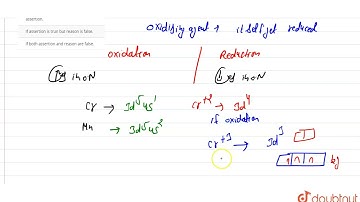 assertion.
If assertion is true but reason is false.
If both assertion and reason are false.
oxidifying agent → itself get reduced
oxidation / Reduction
in O·N in O·N
Cr → 3d⁵4s¹ Cr⁺² → 3d⁴
Mn → 3d⁵4s² if oxidation
Cr⁺³ → 3d³
doubtnut